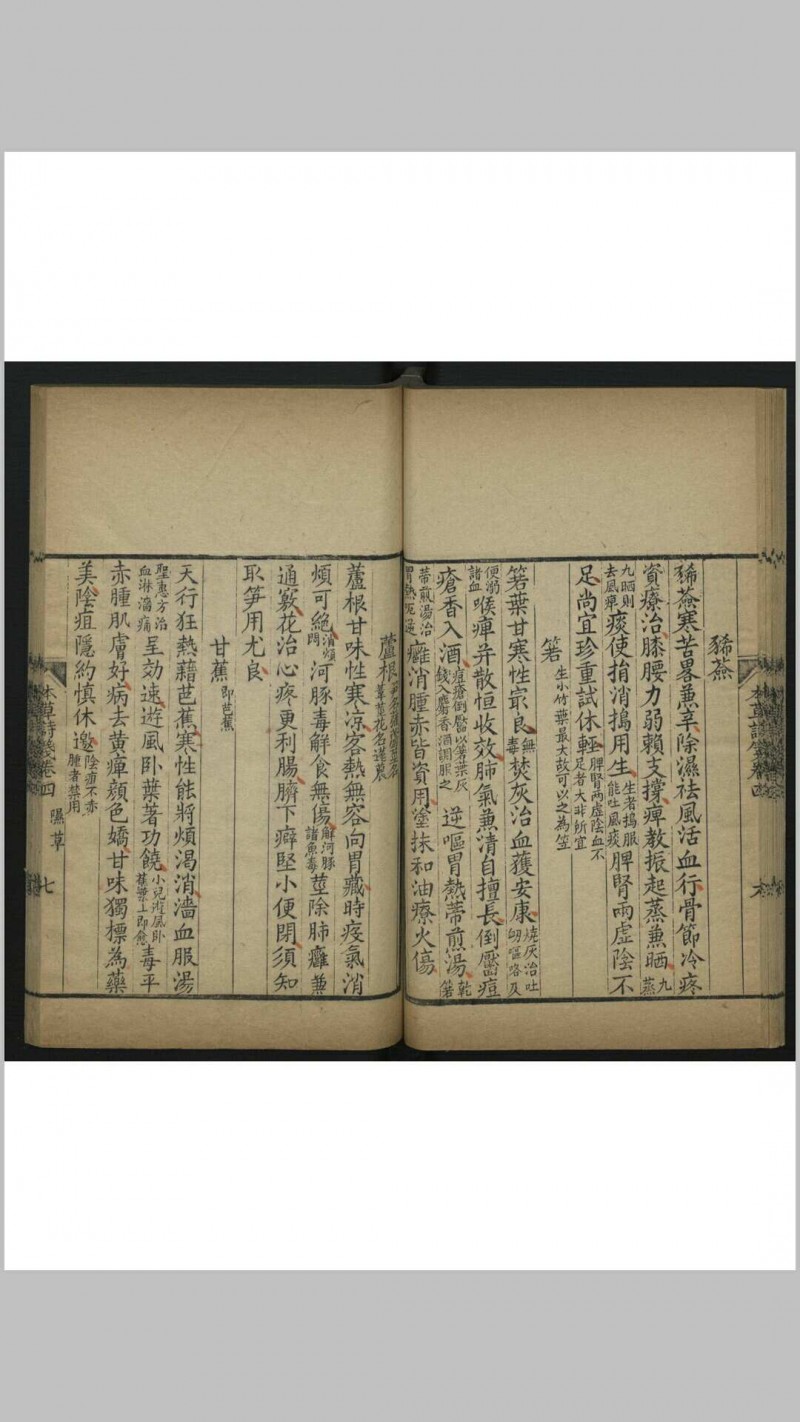 豨薟
豨薟寒苦畧兼辛除濕祛風活血行骨節冷疼
資療治膝腰力弱賴支撐痺教振起蒸兼晒九蒸
九晒則去風痺痰使捐消搗用生生者搗服能吐風痰脾腎兩虛陰不
足尚宜珍重試休輕脾腎兩虛陰血不足者大非所宜
箬生小竹葉最大故可以之為笠
箬葉甘寒性最良無毒焚灰治血獲安康燒灰治吐衂嘔咯及
便溺諸血喉痺并散恒收效肺氣兼清自擅長倒靨痘
瘡香入酒痘瘡倒靨以箬葉灰錢入麝香酒調服之逆嘔胃熱蒂煎湯乾箬
蒂煎湯治胃熱呃逆癰消腫赤皆資用塗抹和油療火傷
蘆根
蘆根甘味性寒凉客熱無容向胃藏時疫氣消
煩可絕消煩悶河豚毒解食無傷解河豚諸魚毒莖除肺癰兼
通竅花治心疼更利腸臍下癖堅小便閉須知
取笋用尤良
甘蕉即芭蕉
天行狂熱藉芭蕉寒性能將煩渴消濇血服湯
聖惠方治血淋濇痛呈効速遊風卧葉著功饒小兒遊風卧蕉葉上即愈毒平
赤腫肌膚好病去黃痺顏色嬌甘味獨標為藥
美陰疽隱約慎休邀陰疽不赤腫者禁用
本草詩箋卷四 隰草 七